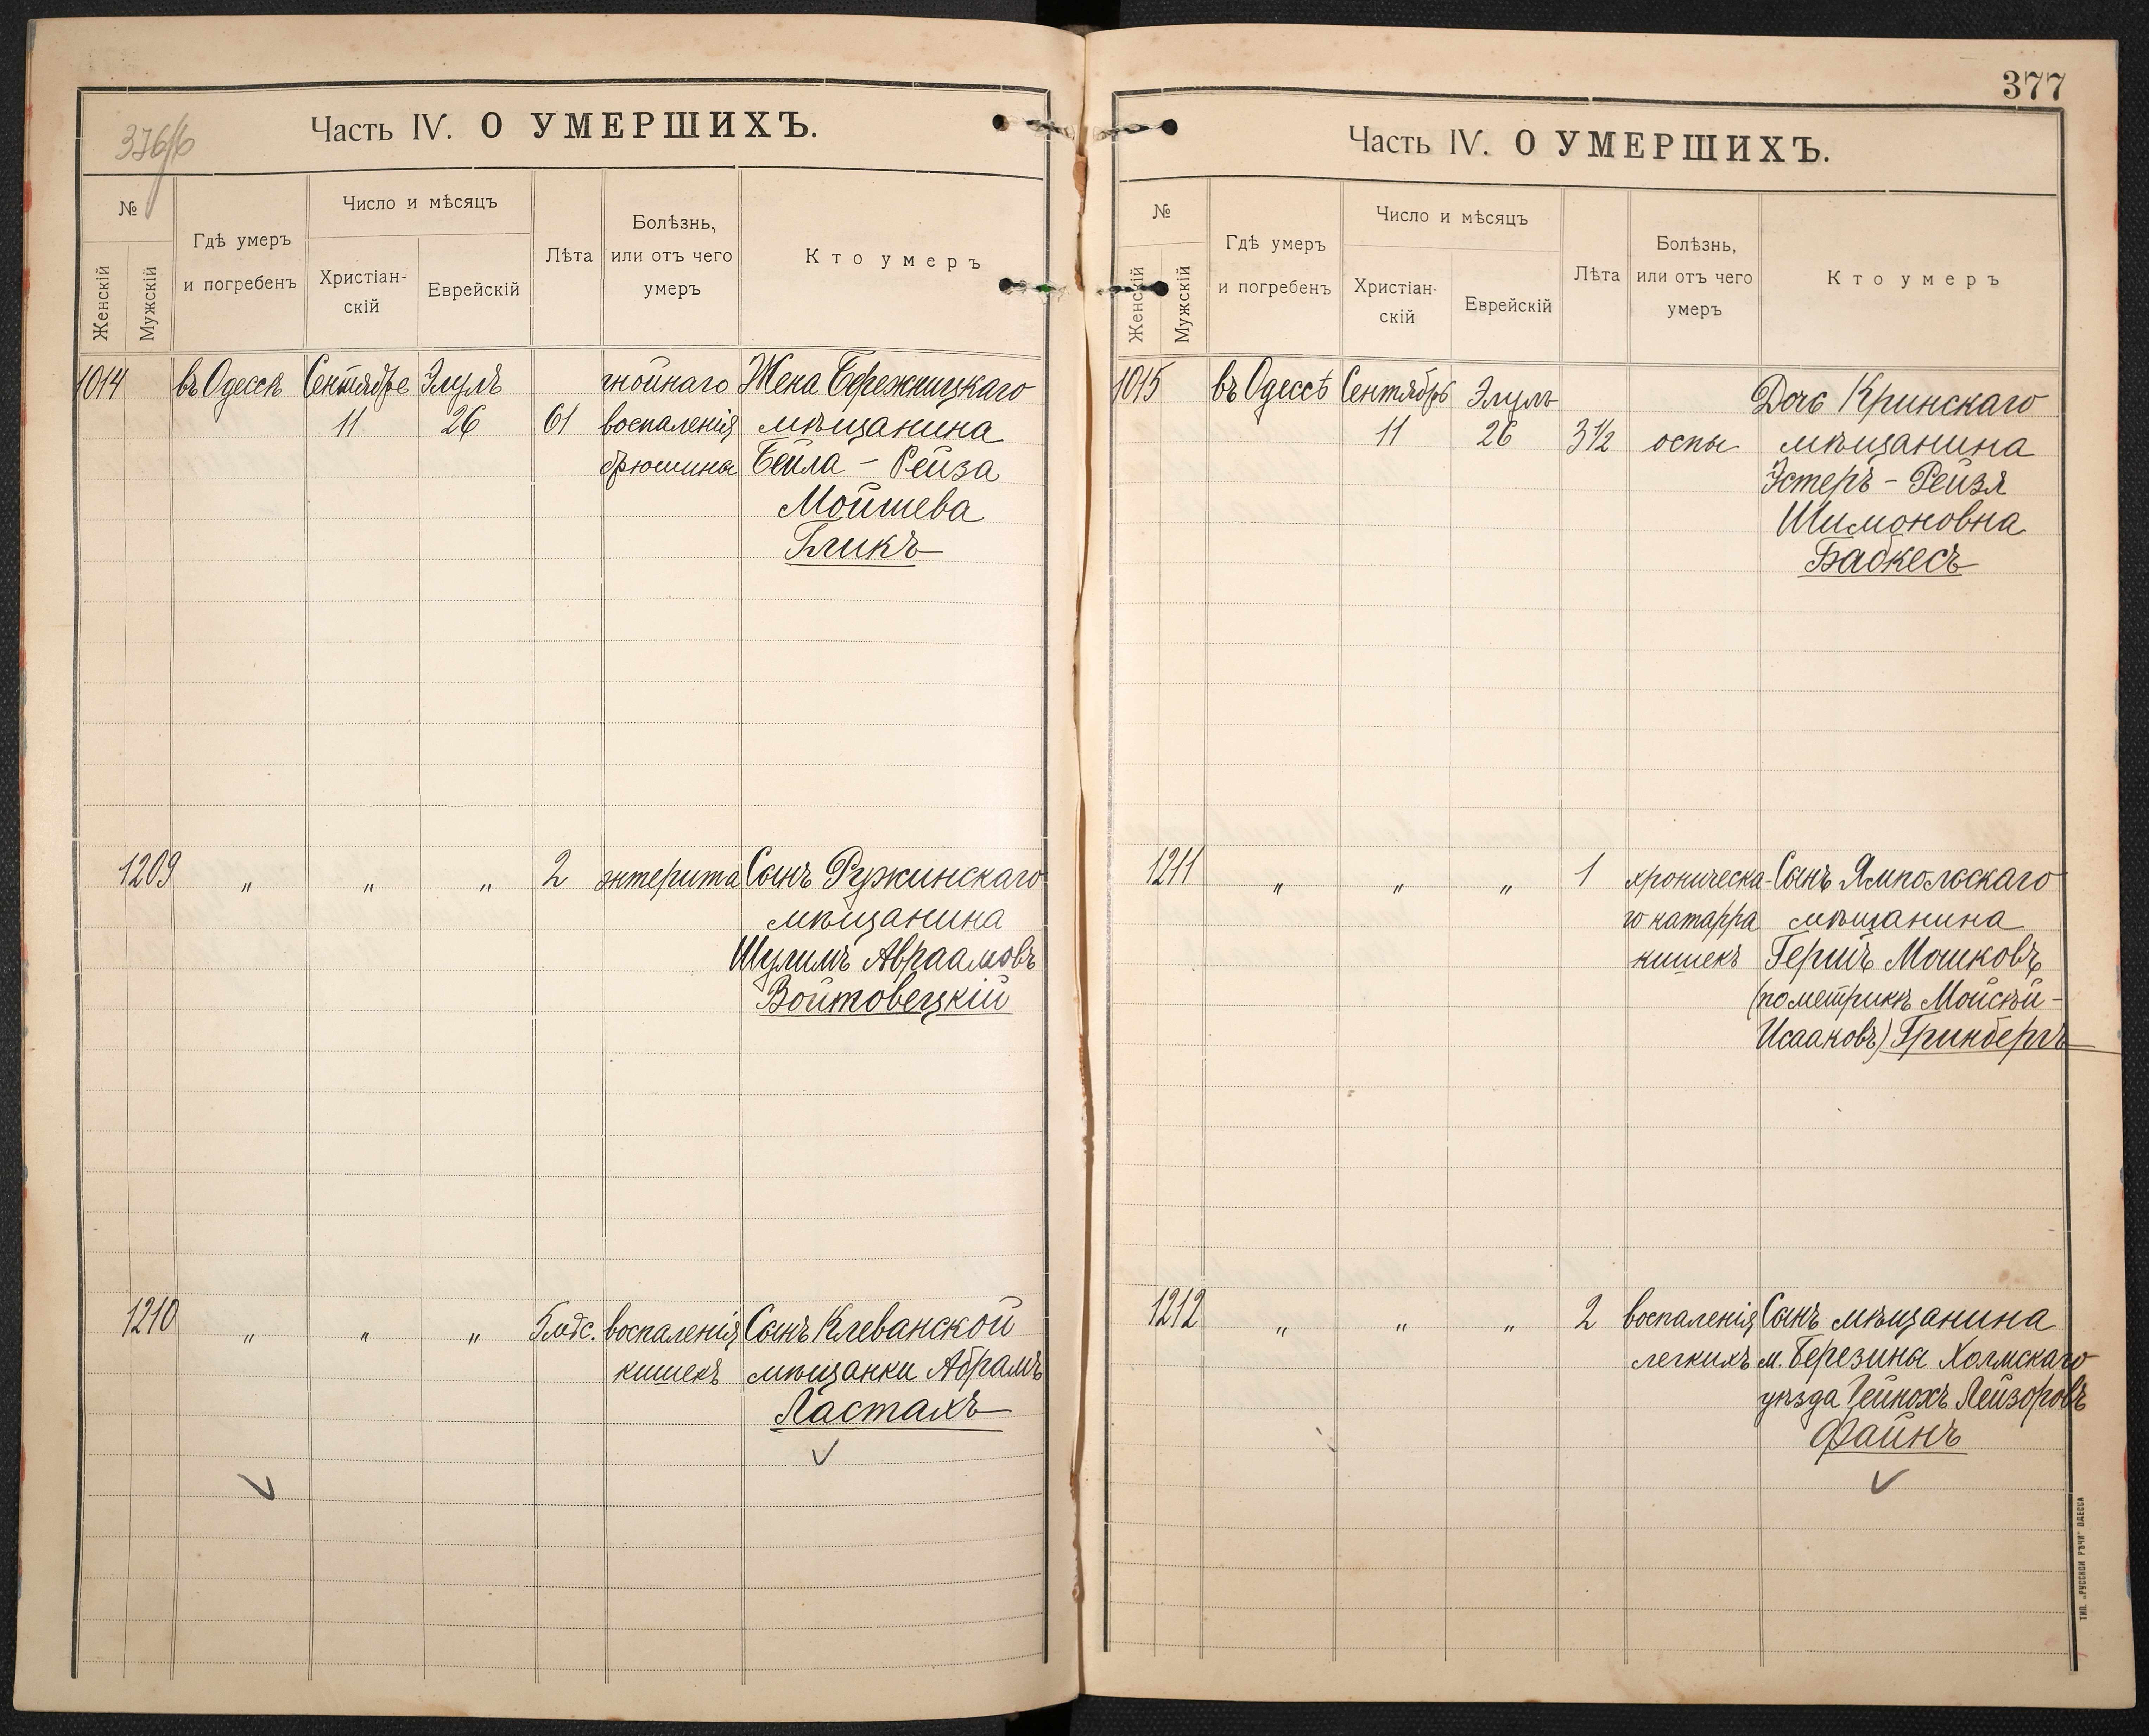 376/б
Часть IV. О УМЕРШИХЪ.
№
Женскій
Мужскій
Гдѣ умеръ
и погребенъ
Число и мѣсяцъ
Христіан-
скій
Еврейскій
Лѣта
Болѣзнь,
или отъ чего
умеръ
Кто умеръ
1014 въ Одессѣ Сентябре Элулъ гнойнаго Жена Бережницкаго
11 26 61 воспаленія мѣщанина
брюшины Бейла - Рейза
Мойшева
Бликъ
1209 „ „ „ 2 энтерита Сынъ Ружинскаго
мѣщанина
Шулимъ Авраамовъ
Войтовецкій
1210 „ „ „ 5 мѣс. воспаленія Сынъ Клеванской
кишекъ мѣщанки Абрамъ
Ластахъ
377
Часть IV. О УМЕРШИХЪ.
№
Женскій
Мужскій
Гдѣ умеръ
и погребенъ
Число и мѣсяцъ
Христіан-
скій
Еврейскій
Лѣта
Болѣзнь,
или отъ чего
умеръ
Кто умеръ
1015 въ Одессѣ Сентябрь Элулъ Дочь Кринскаго
11 26 3½ оспы мѣщанина
Эстеръ - Рейзя
Шимоновна
Бабкесъ
1211 „ „ „ 1 хроническа- Сынъ Ямпольскаго
го катарра мѣщанина
кишекъ Гершъ Мошковъ
(по метрикѣ Мойсѣй-
Исааковъ) Гринбергъ
1212 „ „ „ 2 воспаленія Сынъ мѣщанина
легкихъ м. Березина Холмскаго
уѣзда Гейнохъ Лейзоровъ
Файнъ
ТИП. „РУССКОЙ РѢЧИ" ОДЕССА